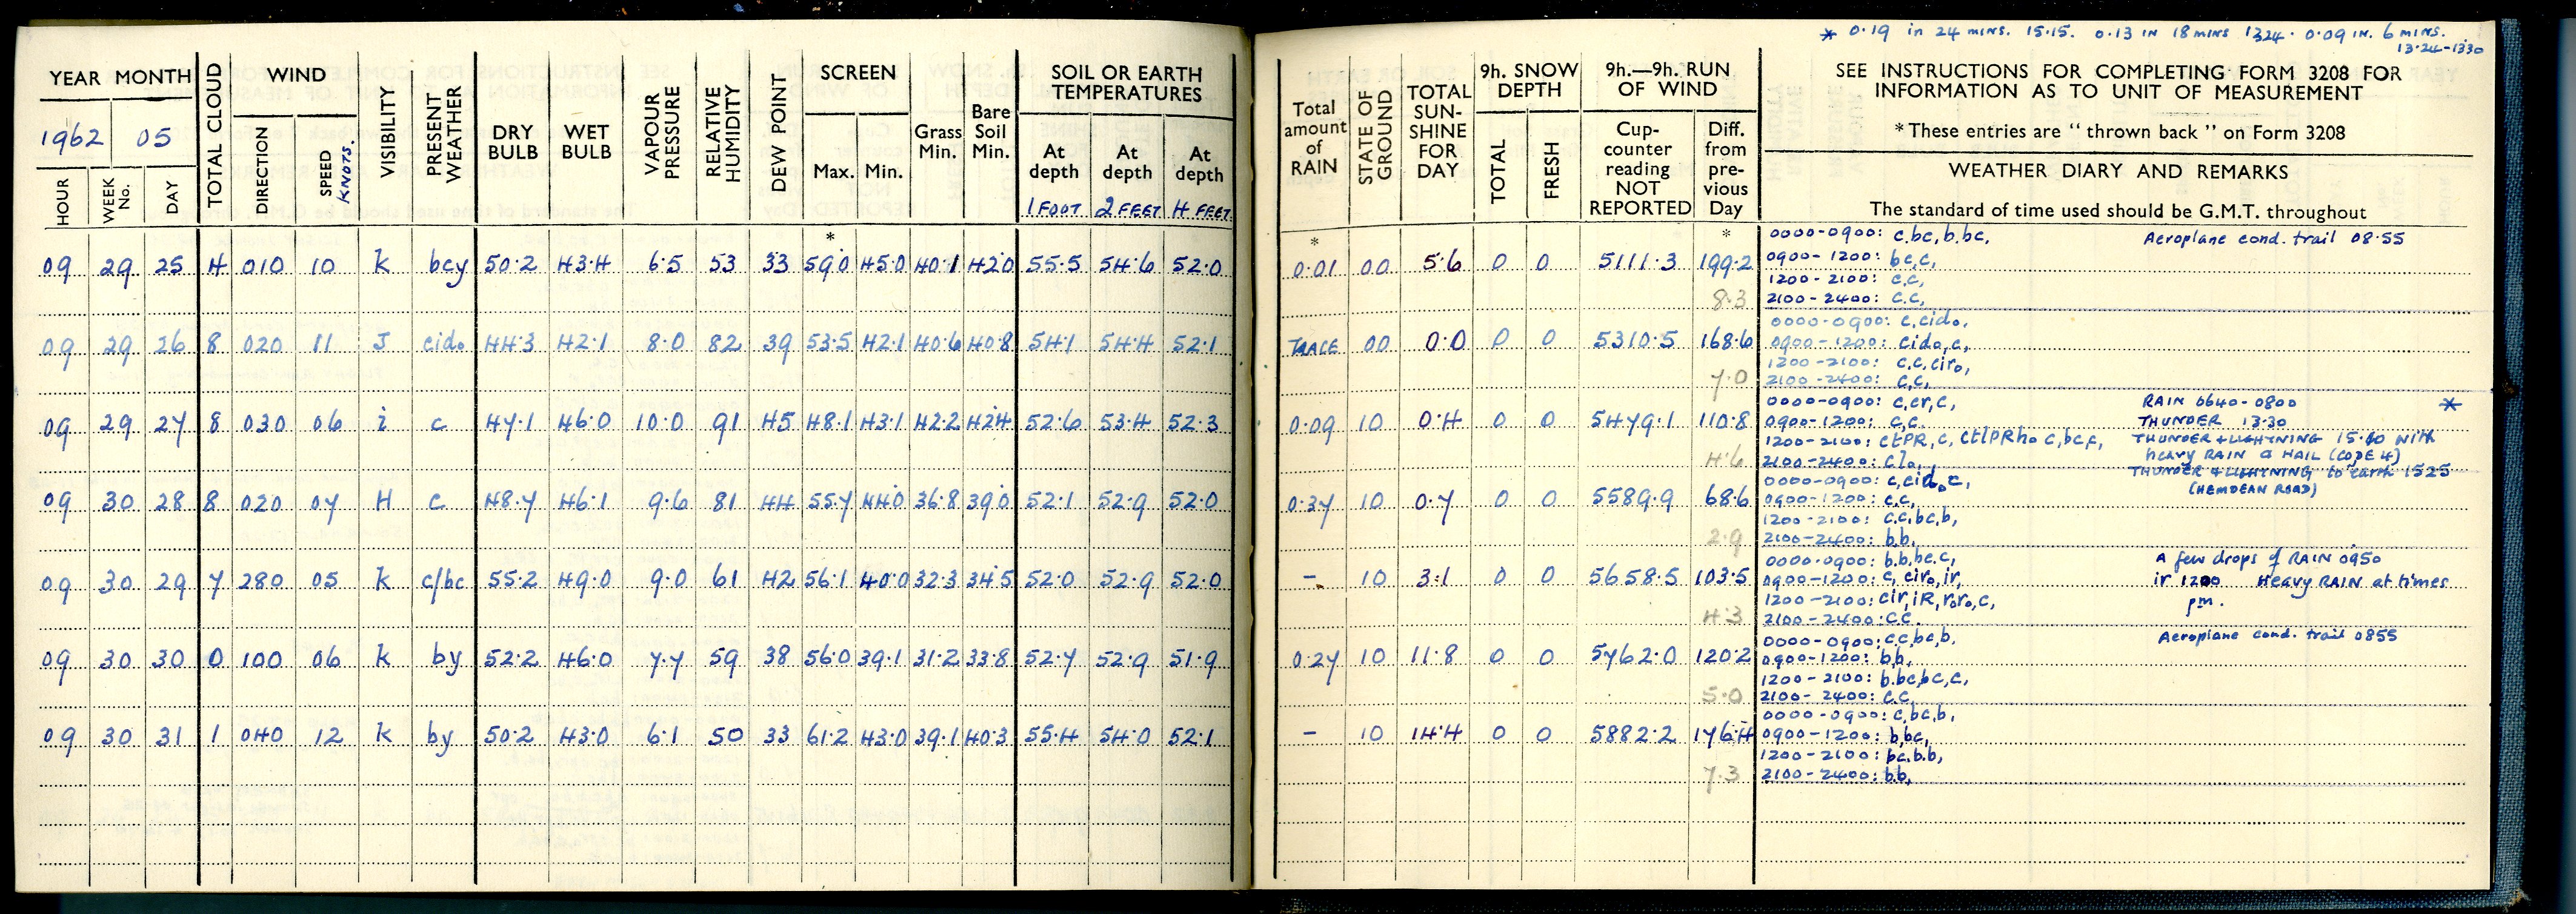 * 0.19 in 24 mins. 15.15. 0.13 in 18 mins 1324. 0.09 in. 6 mins.
13.24-1330
YEAR MONTH
1962 05
HOUR WEEK No. DAY
TOTAL CLOUD
WIND
DIRECTION SPEED KNOTS.
VISIBILITY
PRESENT WEATHER
DRY BULB
WET BULB
VAPOUR PRESSURE
RELATIVE HUMIDITY
DEW POINT
SCREEN
Max. Min.
Grass Min.
Bare Soil Min.
SOIL OR EARTH TEMPERATURES
At depth At depth At depth
1 FOOT 2 FEET 4 FEET
Total amount of RAIN
STATE OF GROUND
TOTAL SUN-SHINE FOR DAY
9h. SNOW DEPTH
TOTAL FRESH
9h.—9h. RUN OF WIND
Cup-counter reading NOT REPORTED
Diff. from pre-vious Day
SEE INSTRUCTIONS FOR COMPLETING FORM 3208 FOR
INFORMATION AS TO UNIT OF MEASUREMENT
* These entries are "thrown back" on Form 3208
WEATHER DIARY AND REMARKS
The standard of time used should be G.M.T. throughout
* * *
09 29 25 4 010 10 k bcy 50.2 43.4 6.5 53 33 59.0 45.0 40.1 42.0 55.5 54.6 52.0 0.01 00 5.6 0 0 5111.3 199.2
8.3
0000-0900: c,bc,b.bc, Aeroplane cond. trail 08.55
0900-1200: bc,c,
1200-2100: c.c,
2100-2400: c.c,
09 29 26 8 020 11 J cido 44.3 42.1 8.0 82 39 53.5 42.1 40.6 40.8 54.1 54.4 52.1 TRACE 00 0.0 0 0 5310.5 168.6
7.0
0000-0900: c,cido,
0900-1200: cido,c,
1200-2100: c.c,ciro,
2100-2400: c,c,
09 29 27 8 030 06 i c 47.1 46.0 10.0 91 45 48.1 43.1 42.2 42.4 52.6 53.4 52.3 0.09 10 0.4 0 0 5479.1 110.8
4.6
0000-0900: c,cr,c, RAIN 0640-0800 *
0900-1200: c,c. THUNDER 13.30
1200-2100: ctPR,c, ctlPRho c,bc,c, THUNDER + LIGHTNING 15.10 with
heavy RAIN & HAIL (CODE 4)
2100-2400: clo, THUNDER & LIGHTNING to earth 1525
(HEMDEAN ROAD)
09 30 28 8 020 07 H c 48.7 46.1 9.6 81 44 55.7 44.0 36.8 39.0 52.1 52.9 52.0 0.37 10 0.7 0 0 5589.9 68.6
2.9
0000-0900: c,cido c,
0900-1200: c,c,
1200-2100: c.c,bc,b,
2100-2400: b.b,
09 30 29 7 280 05 k c/bc 55.2 49.0 9.0 61 42 56.1 40.0 32.3 34.5 52.0 52.9 52.0 - 10 3.1 0 0 5658.5 103.5
4.3
0000-0900: b.b,bc.c, A few drops of RAIN 0950
0900-1200: c, ciro, ir, ir 1200 Heavy RAIN at times
1200-2100: cir, iR, roro, c, pm.
2100-2400: c.c.
09 30 30 0 100 06 k by 52.2 46.0 7.7 59 38 56.0 39.1 31.2 33.8 52.7 52.9 51.9 0.27 10 11.8 0 0 5762.0 120.2
5.0
0000-0900: c,c,bc,b, Aeroplane cond. trail 0855
0900-1200: b.b,
1200-2100: b.bc,bc,c,
2100-2400: c.c.
09 30 31 1 040 12 k by 50.2 43.0 6.1 50 33 61.2 43.0 39.1 40.3 55.4 54.0 52.1 - 10 14.4 0 0 5882.2 176.4
7.3
0000-0900: c,bc,b,
0900-1200: b,bc,
1200-2100: bc.b.b,
2100-2400: b.b,